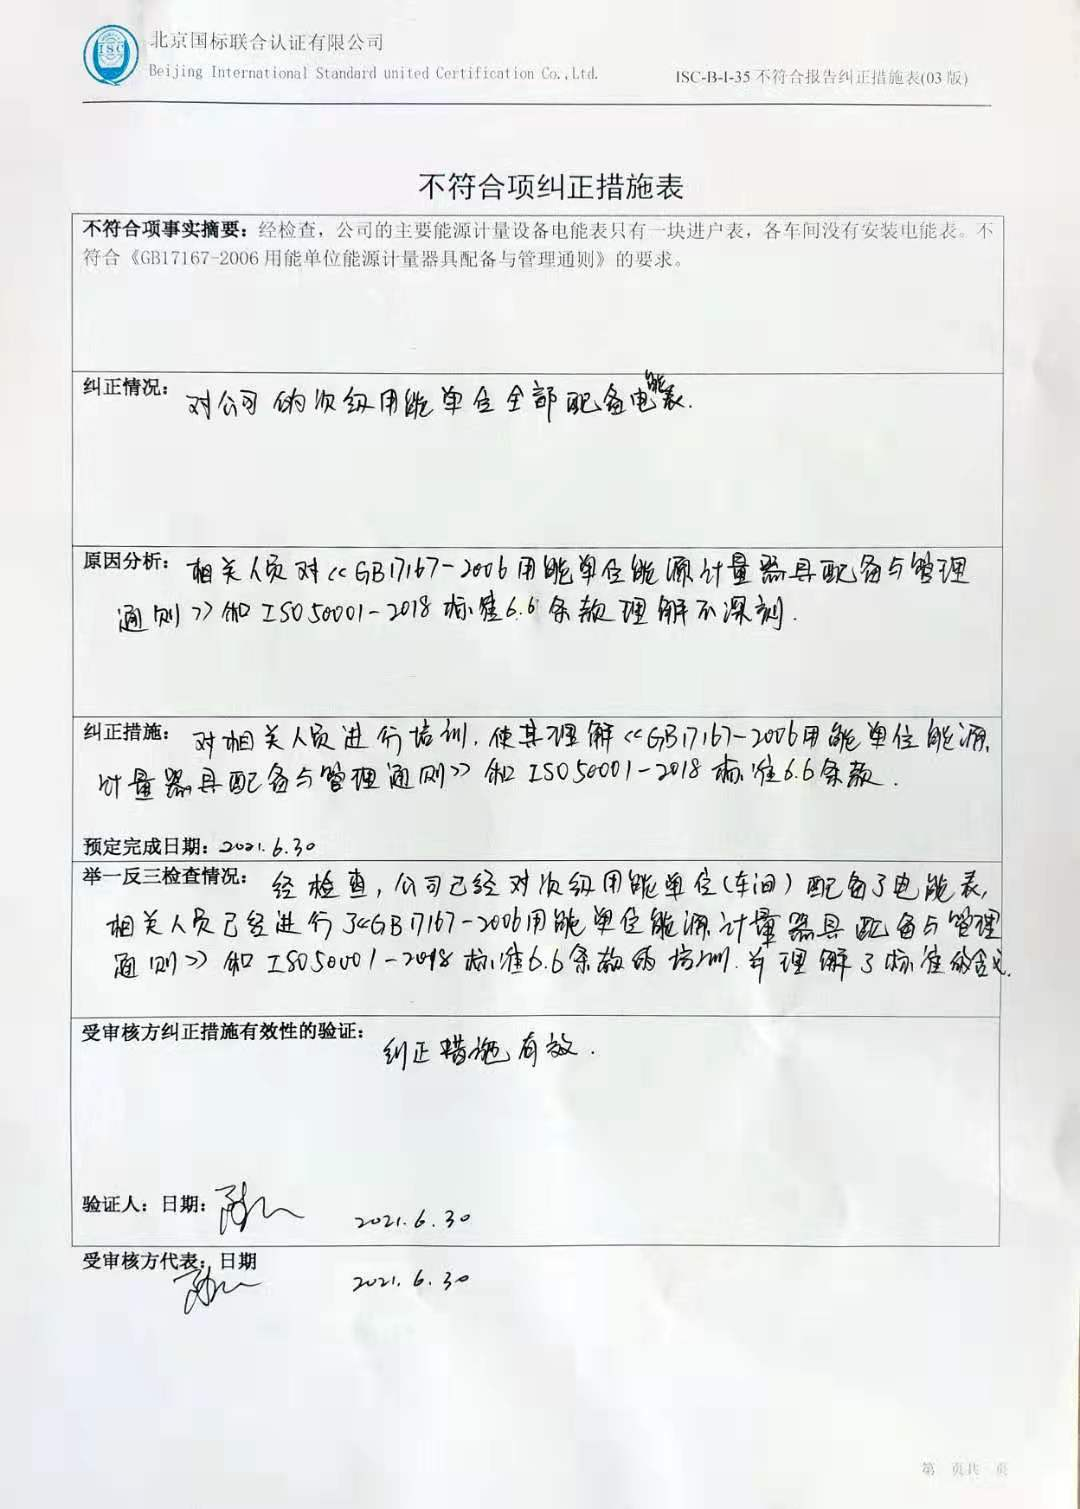 ISC
北京国标联合认证有限公司
Beijing International Standard united Certification Co.,Ltd.
ISC-B-I-35 不符合报告纠正措施表(03 版)
不符合项纠正措施表
不符合项事实摘要：经检查，公司的主要能源计量设备电能表只有一块进户表，各车间没有安装电能表。不
符合《GB17167-2006 用能单位能源计量器具配备与管理通则》的要求。
纠正情况：
对公司的次级用能单位全部配备电能表.
原因分析：相关人员对<<GB17167-2006用能单位能源计量器具配备与管理
通则>>和ISO50001-2018标准6.6条款理解不深刻.
纠正措施：对相关人员进行培训,使其理解<<GB17167-2006用能单位能源
计量器具配备与管理通则>>和ISO50001-2018标准6.6条款.
预定完成日期：2021.6.30
举一反三检查情况：经检查,公司已经对次级用能单位(车间)配备了电能表,
相关人员已经进行了<<GB17167-2006用能单位能源计量器具配备与管理
通则>>和ISO50001-2018标准6.6条款的培训.并理解了标准的含义.
受审核方纠正措施有效性的验证：
纠正措施有效.
验证人：日期：2021.6.30
受审核方代表：日期
2021.6.30
第 页共 页